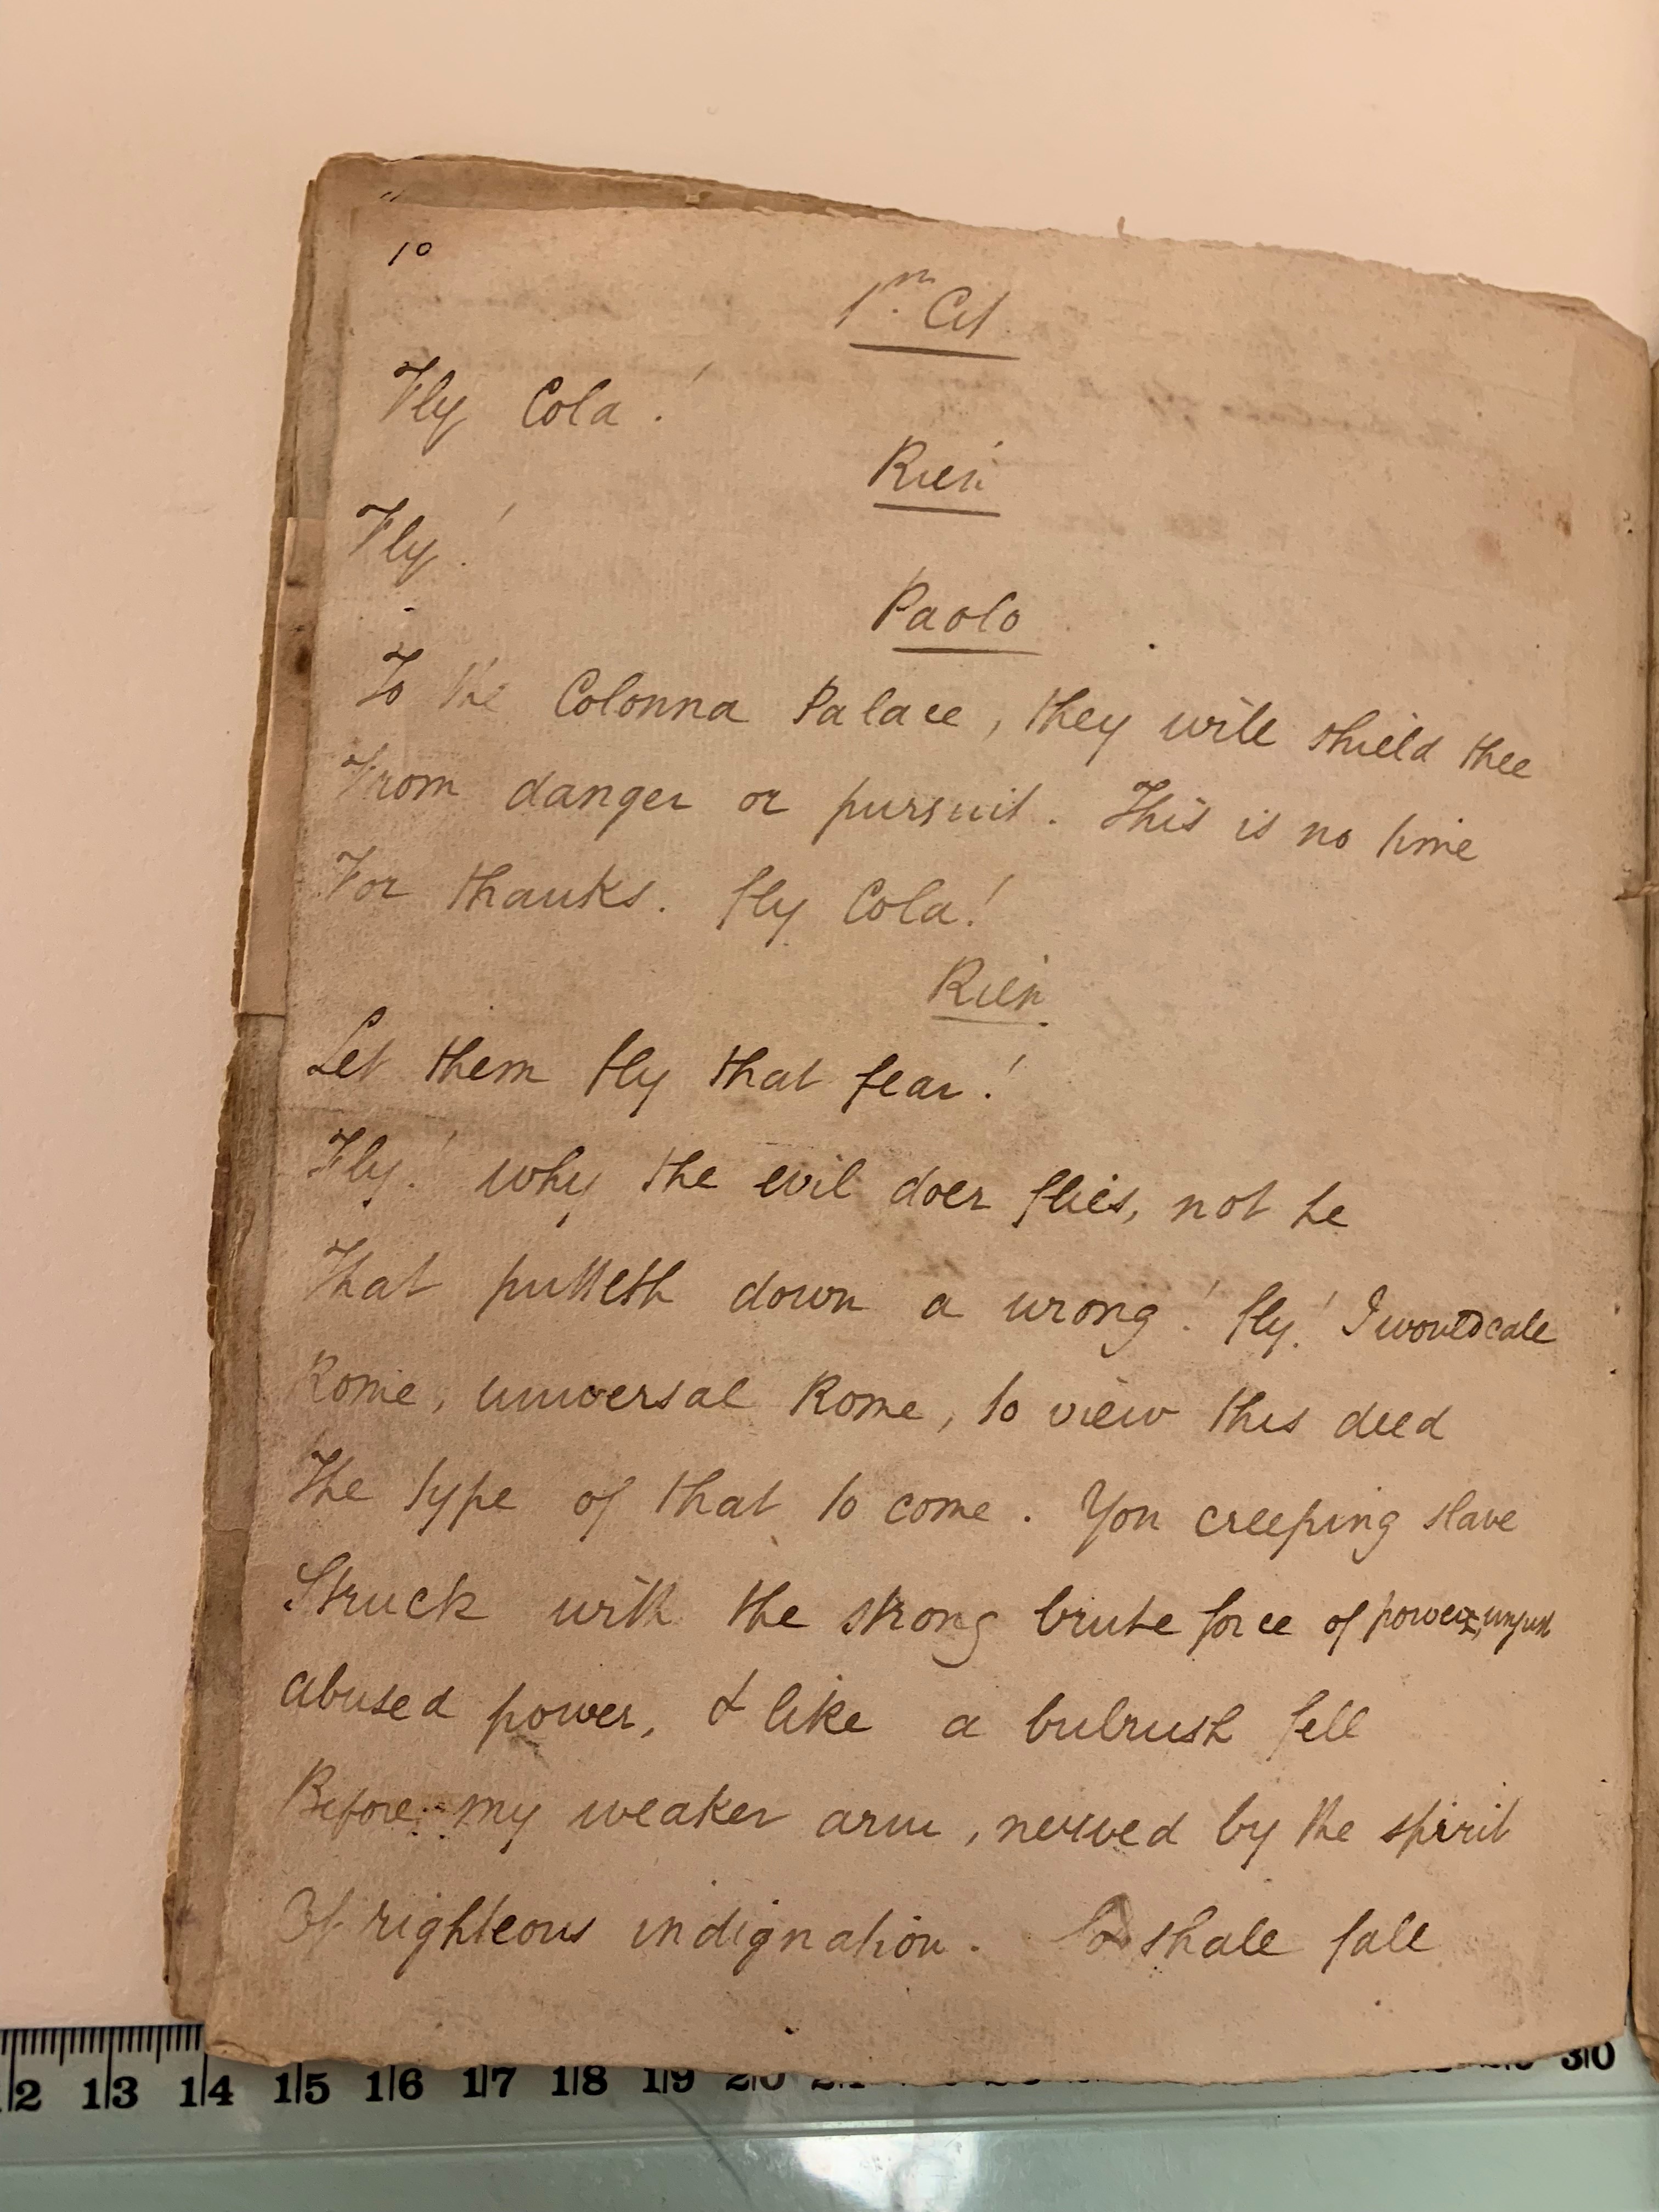 10
1st. Cit
Fly Cola!
Rien
Fly!
Paolo
To the Colonna Palace, they will shield thee
From danger or pursuit. This is no time
For thanks. fly Cola!
Rien
Let them fly that fear!
Fly! why the evil doer flies, not he
That putteth down a wrong! fly! I would call
Rome, universal Rome, to view this deed
The type of that to come. Yon creeping slave
Struck with the strong brute force of power, unjust
abused power, & like a bulrush fell
Before my weaker arm, nerved by the spirit
Of righteous indignation. So shall fall
12 13 14 15 16 17 18 19 20 21 30